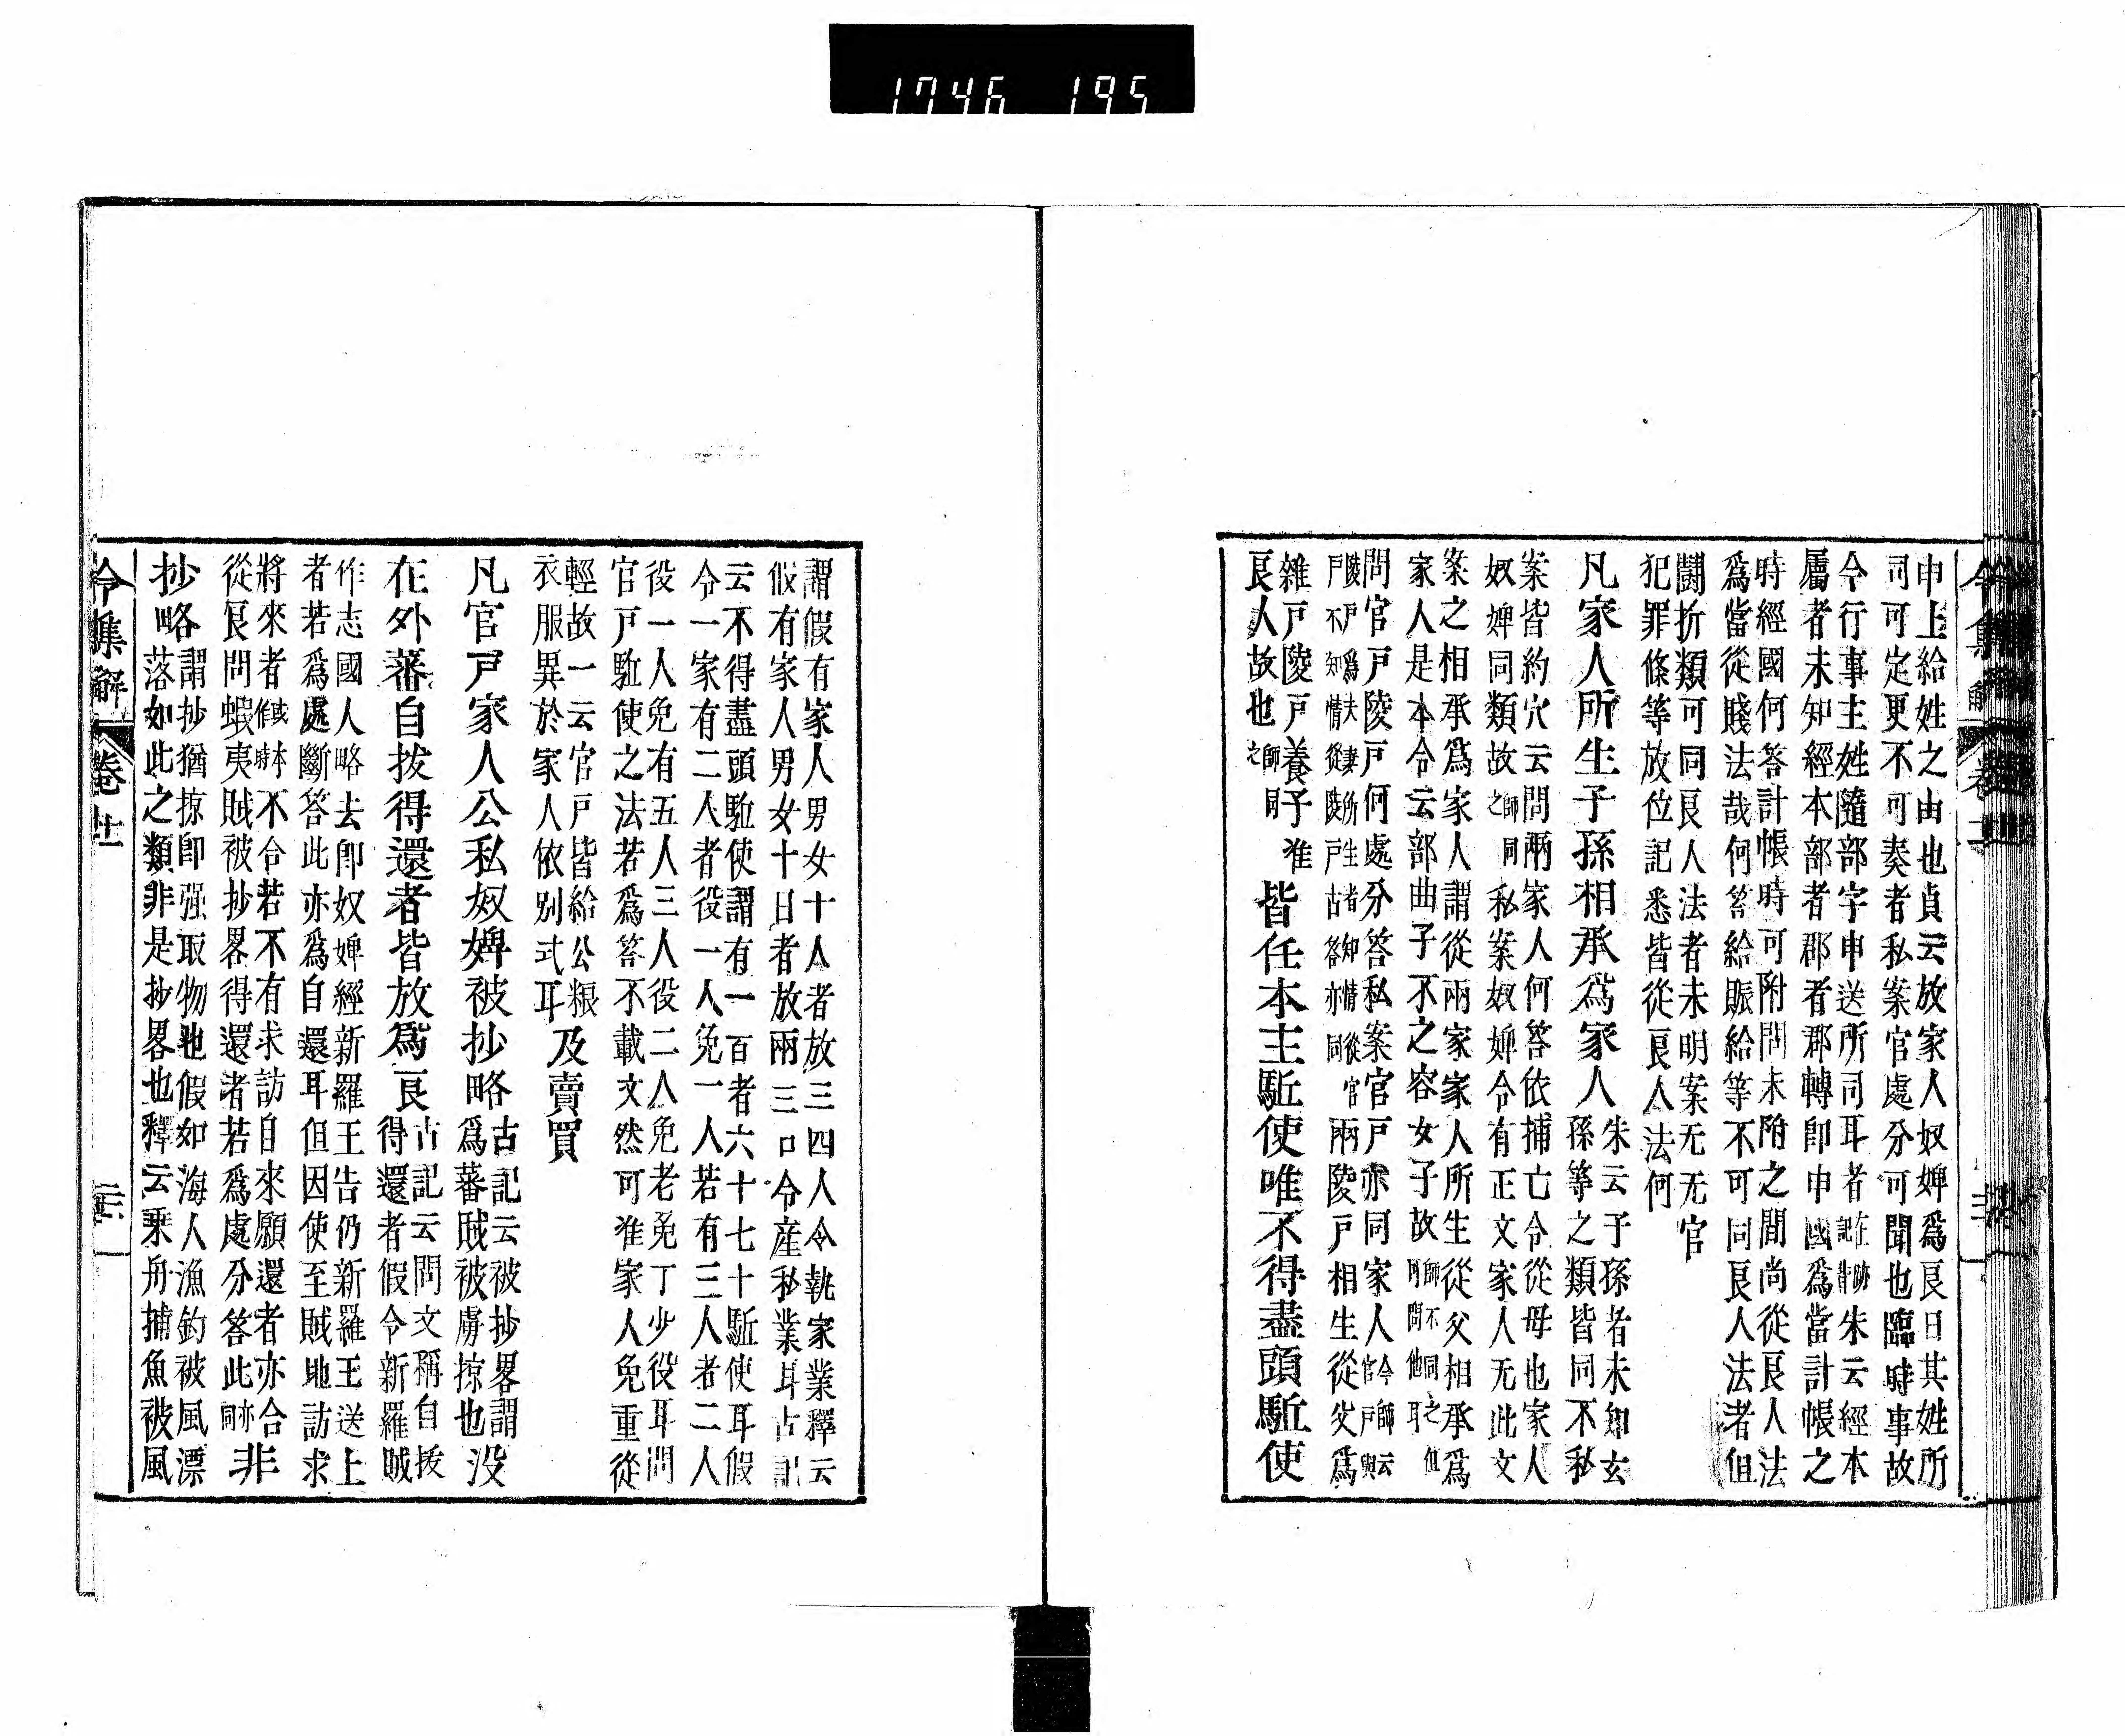 1746 195
申上給姓之由也貞云放家人奴婢爲良日其姓所
司可定更不可奏者私案官處分可聞也臨時事故
令行事主姓隨部字申送所司耳者在跡記背朱云經本
屬者未知經本部者郡者郡轉即申國爲當計帳之
時經國何答計帳時可附問未附之間尚從良人法
爲當從賤法哉何答給賑給等不可同良人法者但
鬪折類可同良人法者未明案无无官
犯罪條等放位記悉皆從良人法何
凡家人所生子孫相承爲家人
朱云子孫者未知玄
孫等之類皆同不私
案皆約穴云問兩家人何答依捕亡令從母也家人
奴婢同類故師同之私案奴婢令有正文家人无此文
案之相承爲家人謂從兩家家人所生從父相承爲
家人是本令云部曲子不之容女子故師不同之但可問他耳
問官戸陵戸何處分答私案官戸亦同家人今師云官戸與
陵戸爲夫妻所生者知情從官
戸不知情從陵戸古答亦同
兩陵戸相生從父爲
雜戸陵戸養子准
良人故也師同之
皆任本主駈使唯不得盡頭駈使
謂假有家人男女十人者放三四人令執家業釋云
假有家人男女十日者放兩三口令産私業耳古記
云不得盡頭駈使謂有一百者六十七十駈使耳假
令一家有二人者役一人免一人若有三人者二人
役一人免有五人三人役二人免老免丁少役耳問
官戸駈使之法若爲答不載文然可准家人免重從
輕故一云官戸皆給公粮
衣服異於家人依別式耳
及賣買
凡官戸家人公私奴婢被抄略
古記云被抄畧謂
爲蕃賊被虜掠也
没
在外蕃自拔得還者皆放爲良
古記云問文稱自拔
得還者假令新羅賊
作志國人略去即奴婢經新羅王告仍新羅王送上
者若爲處斷答此亦爲自還耳但因使至賊地訪求
將來者或本作時不合若不有求訪自來願還者亦合
從良問蝦夷賊被抄畧得還者若爲處分答此亦同
非
抄略
謂抄猶掠即强取物也假如海人漁釣被風漂
落如此之類非是抄畧也釋云乘舟捕魚被風
令集解 卷十一